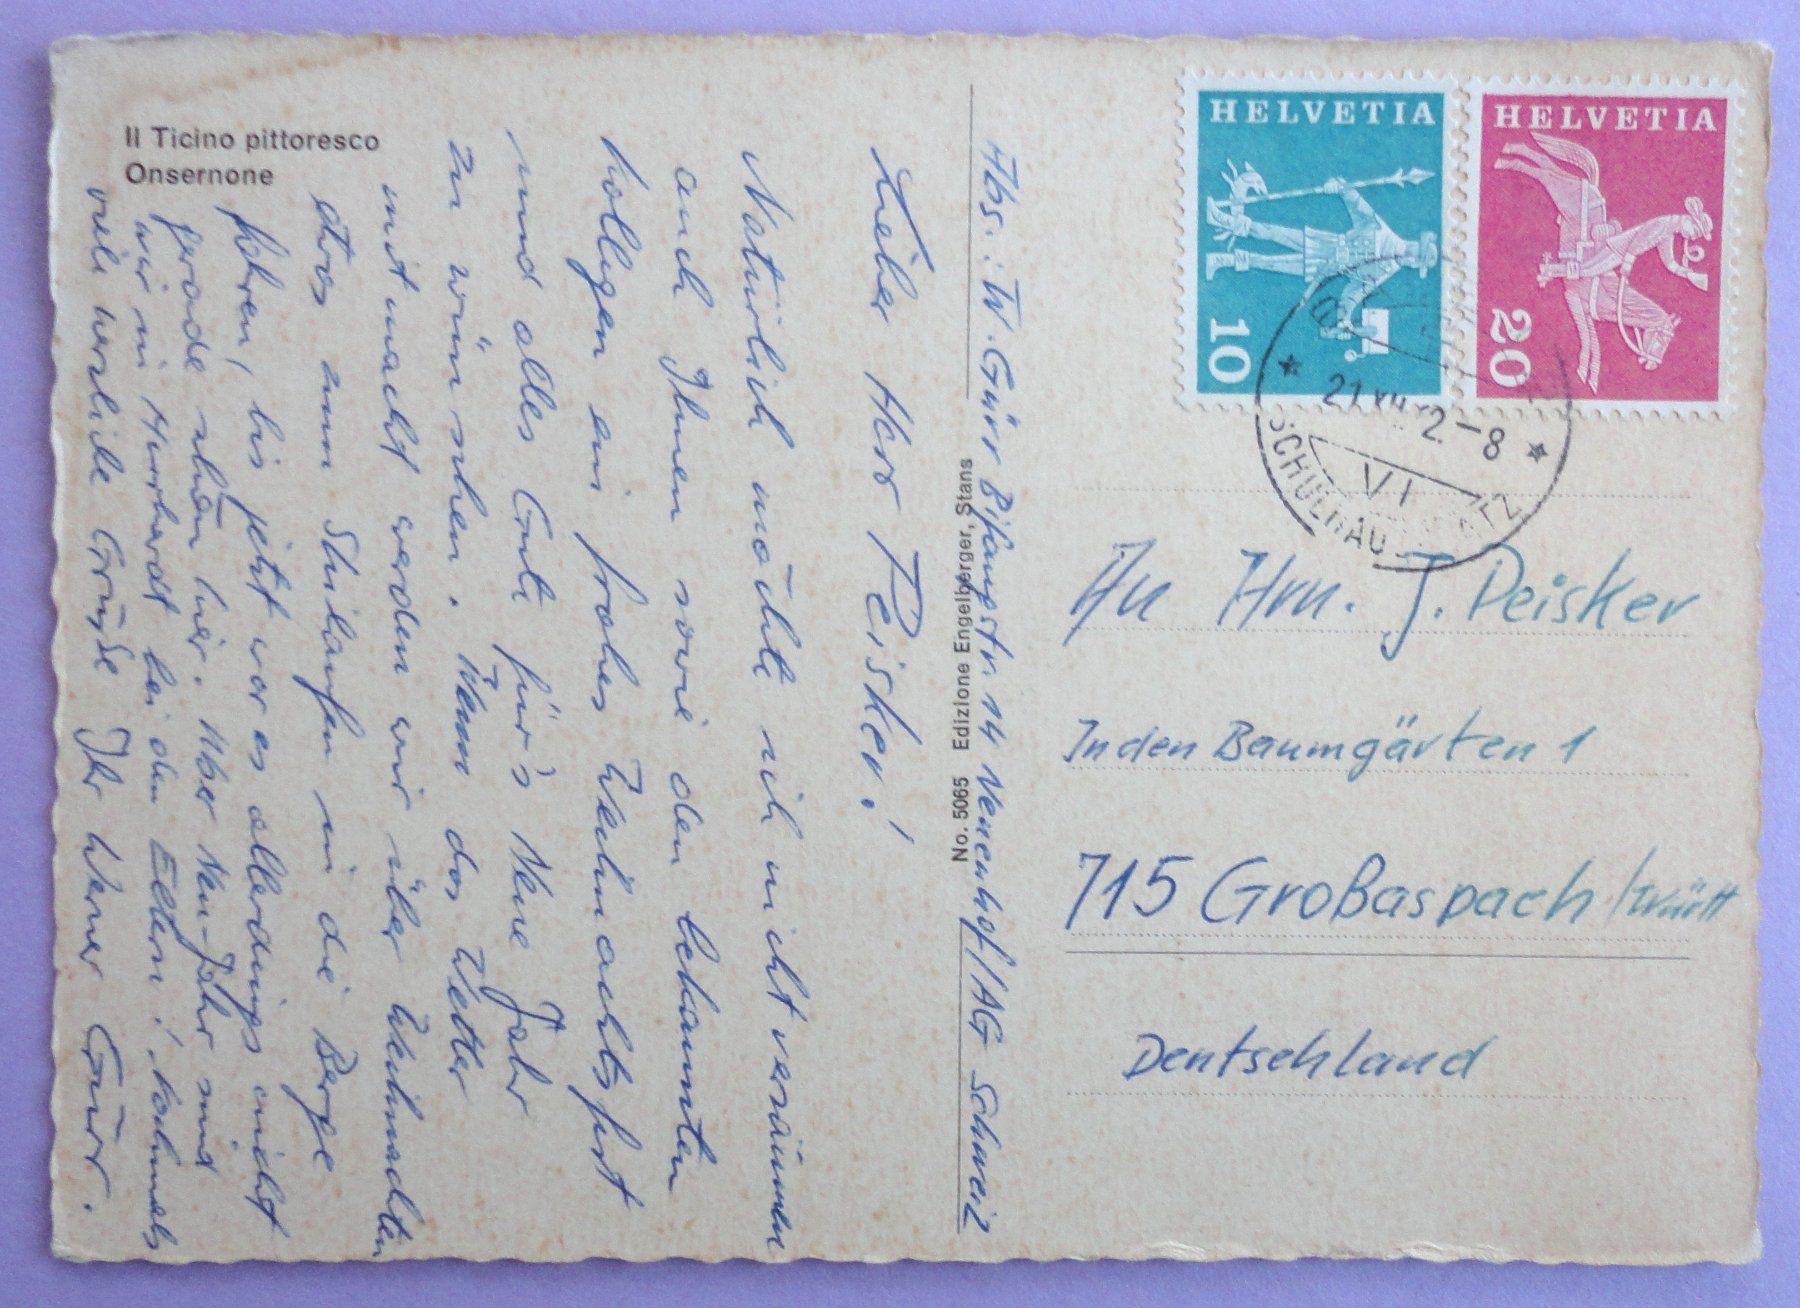 Il Ticino pittoresco
Onsernone
Lieber Herr Peisker!
Natürlich möchte ich nicht versäumen
auch Ihnen sowie den bekannten
Kollegen ein frohes Weihnachtsfest
und alles Gute für's Neue Jahr
zu wünschen. Wenn das Wetter
mitmacht werden wir über Weihnachten
etwas zum Skilaufen in die Berge
fahren, bis jetzt war es allerdings nicht
gerade schön hier. Aber Neu-Jahr sind
wir in Murrhardt bei den Eltern! Nochmals
viele herzliche Grüße Ihr Werner Gürr.
Abs.: W. Gürr Bifangstr. 14 Neuenhof/AG Schweiz
No. 5065 Edizione Engelberger, Stans
HELVETIA
10
HELVETIA
20
21 XII 2-8
SCHULHAU
An Hrn. J. Peisker
In den Baumgärten 1
715 Großaspach/Württ
Deutschland